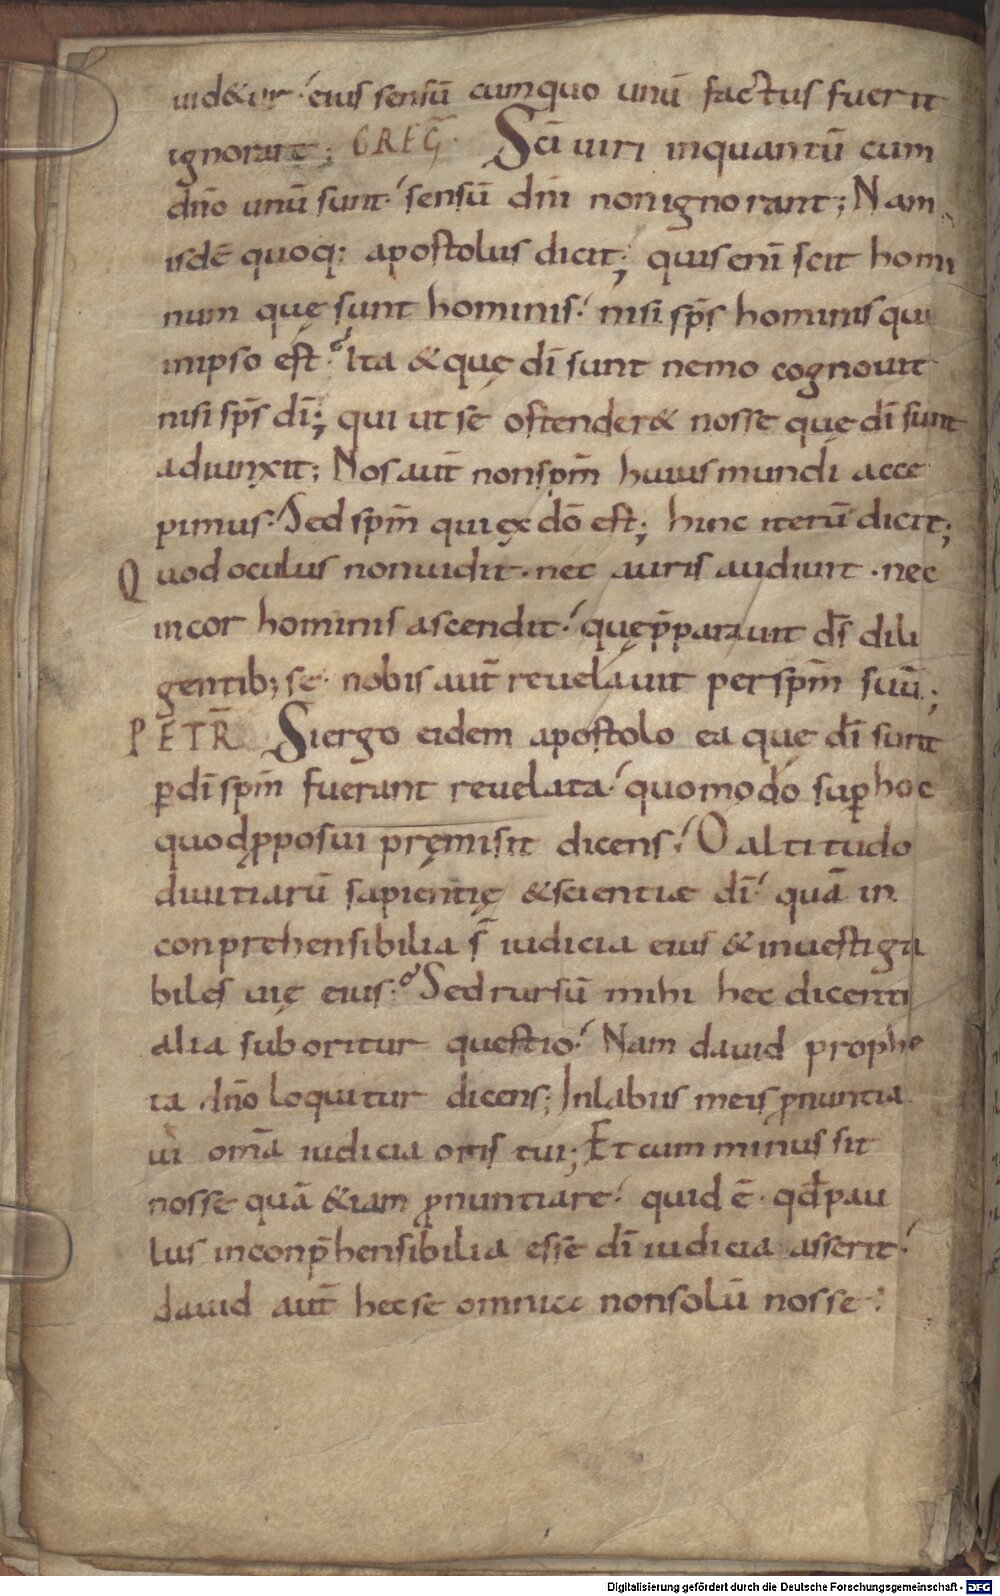 uid&ur eius sensū cumquo unū factus fuerit
ignorare; GREḠ. Sc̄i uiri inquantū cum
dn̄o unū sunt sensū dn̄i nonignorant; Nam
isdē quoq: apostolus dicit; quis enī scit homi
num quę sunt hominis nisi sp̄s hominis qui
inipso est Ita &quę dī sunt nemo cognouit
nisi sp̄s dī; qui ut se ostender& nosse quę dī sunt
adiunxit; Nos aut̄ nonsp̄m huius mundi acce
pimus Sed sp̄m qui ex dō est; hinc iterū dicit;
Quod oculus nonuidit. nec auris audiuit. nec
incor hominis ascendit quęp̄parauit d̄s dili
gentib; se nobis aut̄ reuelauit per sp̄m suū;
PETR̄ Si ergo eidem apostolo ea quę dī sunt
ꝑ dī sp̄m fuerant reuelata quomodo suꝑ hoc
quodꝓposui pręmisit dicens O altitudo
diuitiarū sapientię &scientiae dī quā in
conprehensibilia s̄ iudicia eius &inuestiga
biles uię eius Sed rursū mihi hec dicenti
alia suboritur questio Nam dauid prophe
ta dn̄o loquitur dicens; Inlabiis meis ꝓnuntia
ui om̄a iudicia oris tui; Et cum minus sit
nosse quā &iam ꝓnuntiare quid ē. qd̄ pau
lus inconp̄hensibilia esse dī iudicia asserit
dauid aut̄ hec se omnia nonsolū nosse
Digitalisierung gefördert durch die Deutsche Forschungsgemeinschaft - DFG